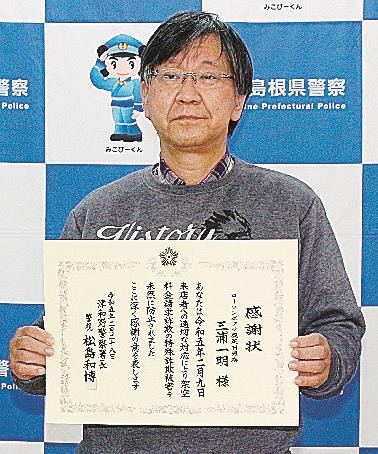 みこぴーくん
警察
Police
島根県警察
ne Prefectural Police
みこぴーくん
History
感謝状
三浦一明 様
あなたは令和五年二月九日
来店者への適切な対応により架空
料金請求詐欺の特殊詐欺被害を
未然に防止されました
ここに深く感謝の意を表します
令和五年二月二十八日
津和野警察署長
警視 松島和博